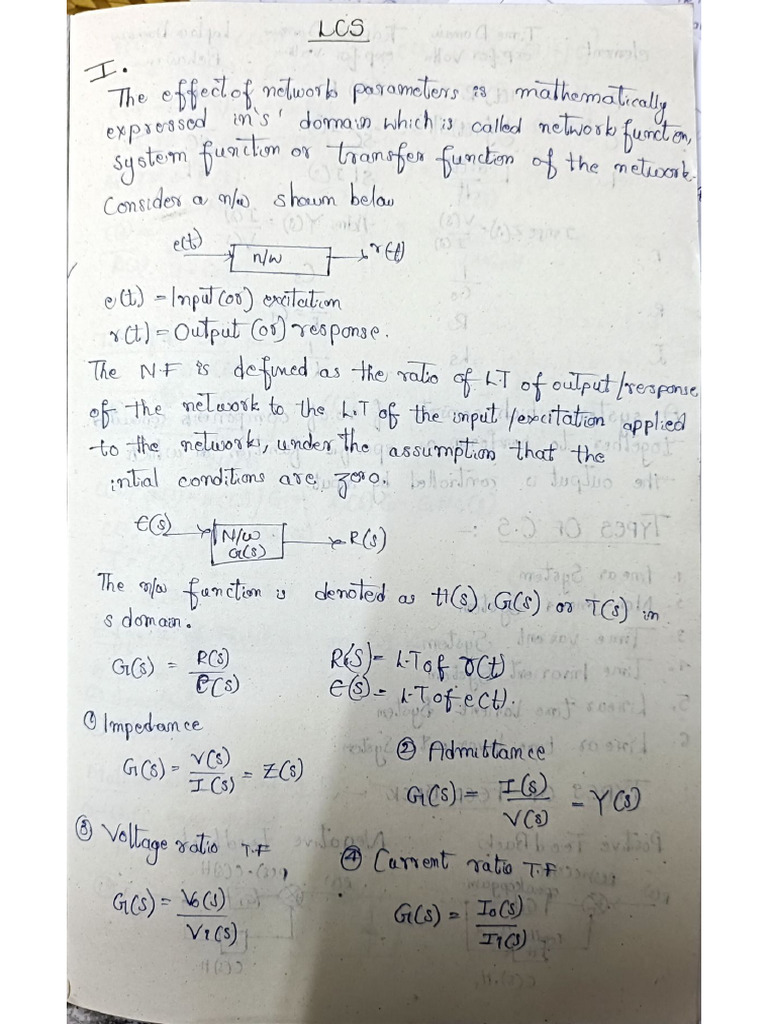 LCS
I.
The effect of network parameters is mathematically
expressed in 's' domain which is called network function,
system function or transfer function of the network.
Consider a n/w shown below
e(t) n/w r(t)
e(t) = Input (or) excitation
r(t) = Output (or) response.
The N.F is defined as the ratio of L.T of output/response
of the network to the L.T of the input/excitation applied
to the network, under the assumption that the
intial conditions are zero.
E(s) N/w G(s) R(s)
The n/w function is denoted as H(s), G(s) or T(s) in
s domain.
G(s) = R(s)/E(s) R(s) = L.T of r(t)
E(s) = L.T of e(t).
① Impedance
G(s) = V(s)/I(s) = Z(s)
② Admittance
G(s) = I(s)/V(s) = Y(s)
③ Voltage ratio T.F
G(s) = Vo(s)/Vi(s)
④ Current ratio T.F
G(s) = Io(s)/Ii(s)